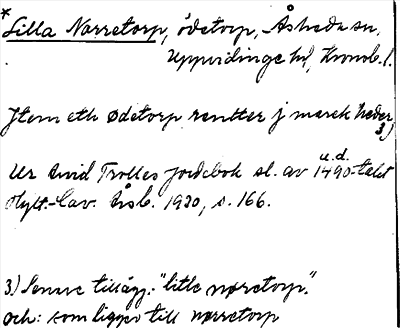 * Lilla Norretorp, ödetorp, Åsheda sn,
Uppvidinge hd, Kronob. l.
Item eth ødetorp rentter j marck heder 3)
u.d.
Ur Arvid Trolles jordebok sl. av 1490-talet
Hylt.-Cav. Årsb. 1930, s. 166.
3) Senare tillägg: "litle nørretorp."
och: som ligger till nørretorp